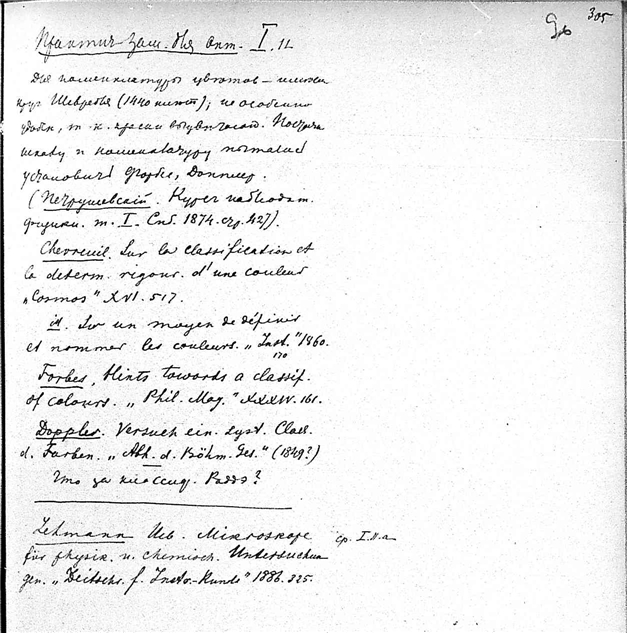 305
Практич. зам. для опт. I. 1L
Для номенклатуры цветов –
круг Шевреля (1440); не особенно
удобн, т. к. краски выцветают.
шкалу и номенклатуру пытались
установить Форбс, Допплер.
(Петрушевский. Курс наблюдат.
физики. т. I. Спб. 1874. стр. 427).
Chevreuil. Sur la classification et
la determ. rigour. d'une couleur
„Cosmos" XVI. 517.
id. Sur un moyen de définir
et nommer les couleurs. „Inst." 1860.
170
Forbes, Hints towards a classif.
of colours. „Phil. Mag." XXXIV. 161.
Doppler. Versuch ein. syst. Class.
d. Farben. „Abh. d. Böhm. Ges." (1849?)
Что за классиф. Раддэ?
Lehmann Ueb. Mikroskope ср. I.11.a
für physik. u. chemisch. Untersuchun
gen. „Zeitschr. f. Instr.-Kunde" 1886. 325.